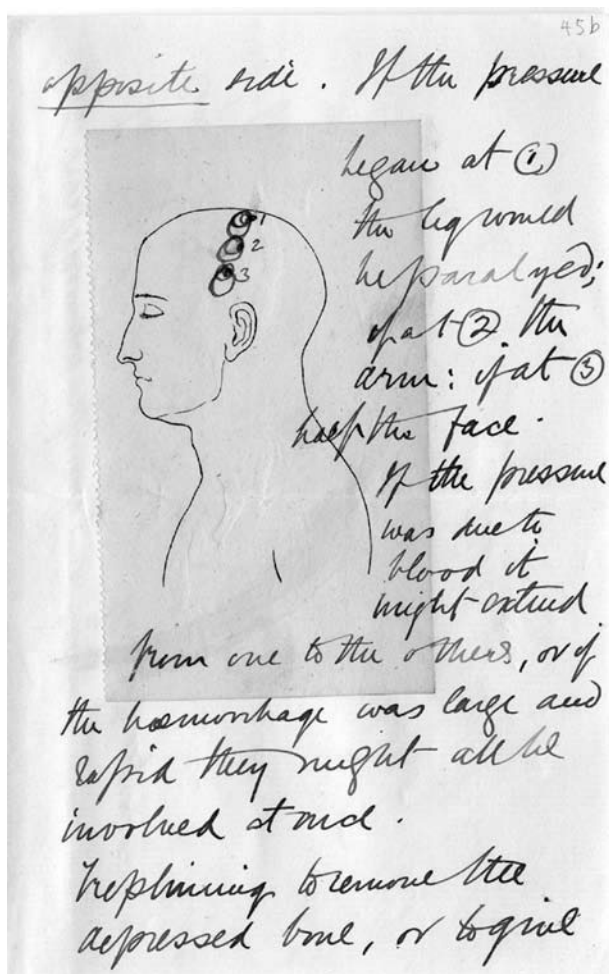 45b
opposite side. If the pressure
began at ①
the leg would
be paralyzed;
if at ② the
arm: if at ③
half the face.
1
2
3
If the pressure
was due to
blood it
might extend
from one to the others, or if
the hæmorrhage was large and
rapid they might all be
involved at once.
Trephining to remove the
depressed bone, or to give